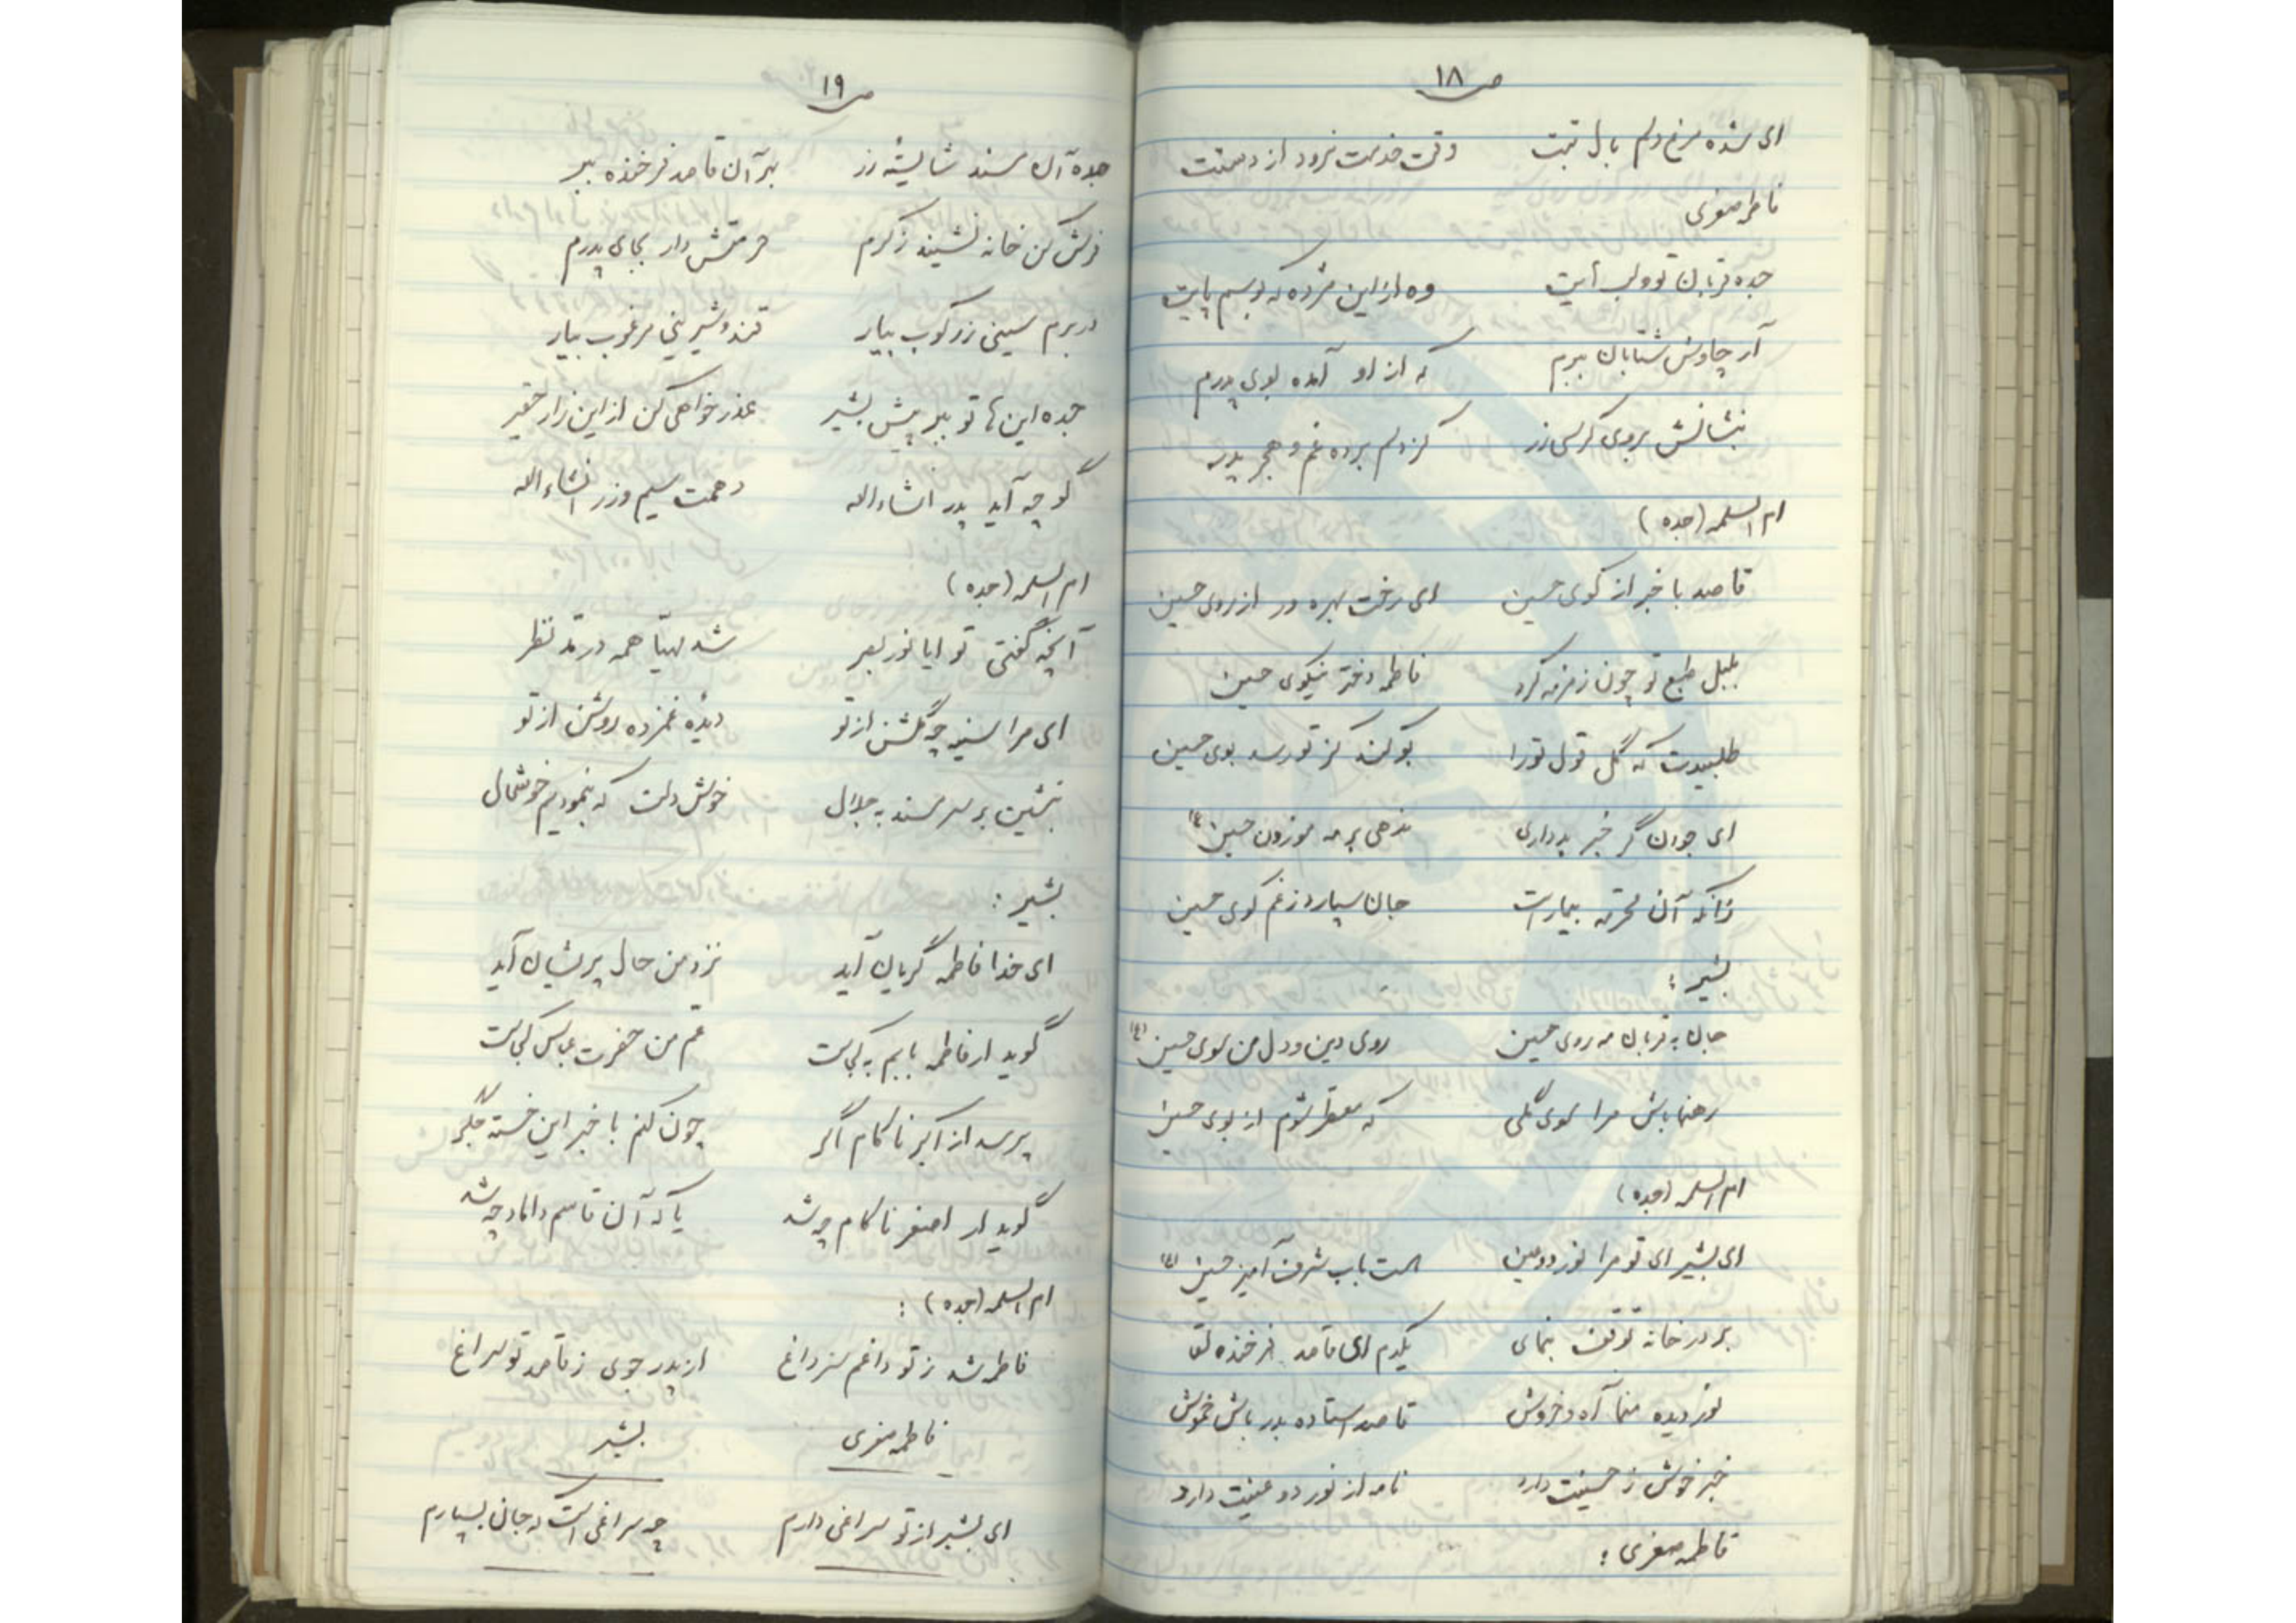 ص ۱۸
ای شده مرغ دلم بال تبت وقت خدمت نرود از دستت
فاطمه صغری
جده قربان تو و لب آیت وه از این مژده که بوسم پایت
آر چاوش شتابان ببرم که از او آمده بوی پدرم
بنشانش بروی کرسی زر کز دلم برده غم و هجر پدر
ام السلمه (جده)
قاصد با خبر از کوی حسین ای رخت بهره ور از روی حسین
بلبل طبع تو چون زمزمه کرد فاطمه دختر نیکوی حسین
طلبیدت که گل قول تو را بو کند کز تو رسد بوی حسین
ای جوان گر خبر بد داری ندهی بر مه موزون حسین (ع)
زانکه آن محترمه بیمار است جان سپارد ز غم کوی حسین
بشیر :
جان به قربان مه روی حسین روی دین و دل من سوی حسین (ع)
رهنما باش مرا سوی گلی که معطر شوم از بوی حسین
ام السلمه (جده)
ای بشیر ای تو مرا نور دو عین هست باب شرف آمیز حسین (ع)
بر در خانه توقف بنمای یکدم ای قاصد فرخنده لقا
نور دیده منما آه و خروش قاصد استاده بدر باش خموش
خبر خوش ز حسینت دارد نامه از نور دو عینت دارد
فاطمه صغری :
ص ۱۹
جده آن مسند شایسته زر بر آن قاصد فرخنده ببر
فرش کن خانه نشیند ز کرم حرمتش دار بجای پدرم
در برم سینی زرکوب بیار قند و شیرینی مرغوب بیار
جده این ها تو ببر پیش بشیر عذر خواهی کن از این زار حقیر
گو چه آید پدر انشاء الله دهمت سیم و زر انشاء الله
ام السلمه (جده)
آنچه گفتی تو ایا نور بصر شد مهیا همه در مد نظر
ای مرا سینه چو گلشن از تو دیده غمزده روشن از تو
بنشین بر سر مسند به جلال خوش دلت که بنمودیم خوشحال
بشیر :
ای خدا فاطمه گریان آید نزد من حال پریشان آید
گوید ار فاطمه بابم به کجاست عم من حضرت عباس کجاست
پرسد از اکبر ناکام اگر چون کنم با خبر این خسته جگر
گوید ار اصغر ناکام چه شد یا که آن قاسم داماد چه شد
ام السلمه (جده) :
فاطمه شد ز تو داغم سر داغ از پدر جوی ز قاصد تو سراغ
فاطمه صغری بشیر
ای بشیر از تو سراغی دارم چه سراغی است که جان بسپارم